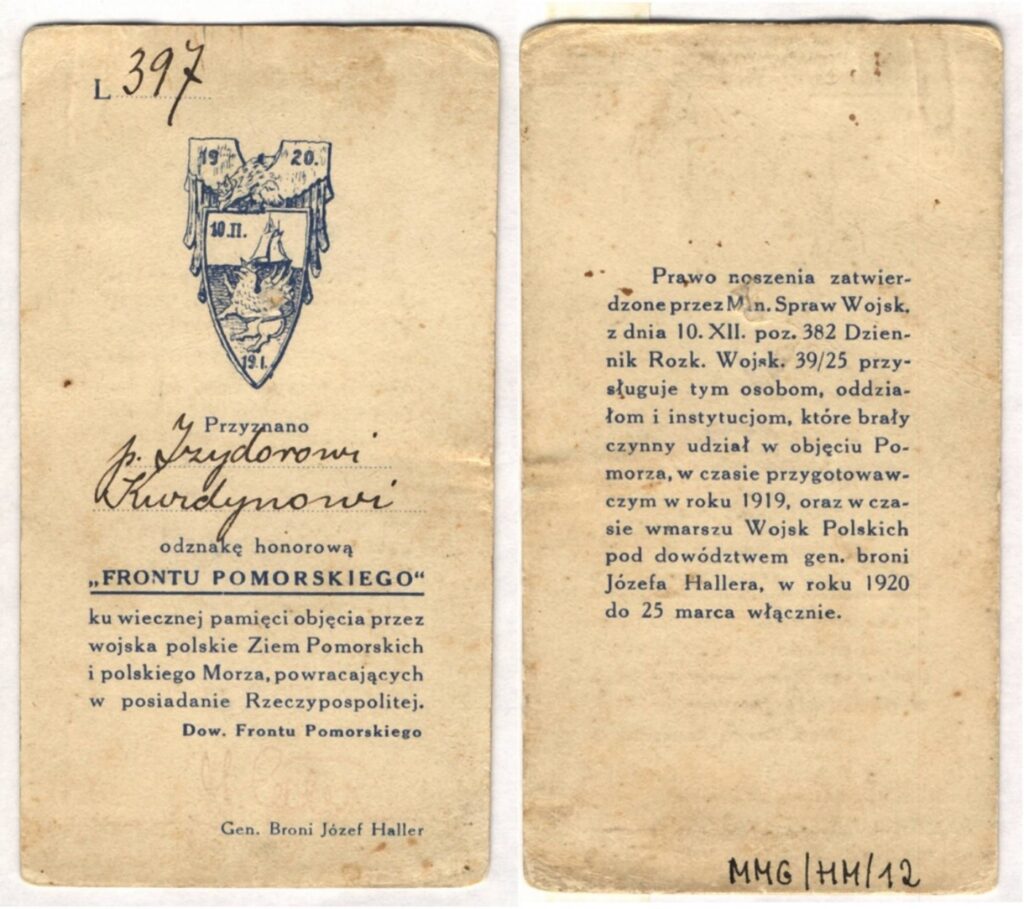 L 397
19 20.
10.II.
19.I.
Przyznano
p. Izydorowi
Kurdynowi
odznakę honorową
„FRONTU POMORSKIEGO“
ku wiecznej pamięci objęcia przez
wojska polskie Ziem Pomorskich
i polskiego Morza, powracających
w posiadanie Rzeczypospolitej.
Dow. Frontu Pomorskiego
Gen. Broni Józef Haller
Prawo noszenia zatwier-
dzone przez Min. Spraw Wojsk.
z dnia 10. XII. poz. 382 Dzien-
nik Rozk. Wojsk. 39/25 przy-
sługuje tym osobom, oddzia-
łom i instytucjom, które brały
czynny udział w objęciu Po-
morza, w czasie przygotowaw-
czym w roku 1919, oraz w cza-
sie wmarszu Wojsk Polskich
pod dowództwem gen. broni
Józefa Hallera, w roku 1920
do 25 marca włącznie.
MMG/HM/12